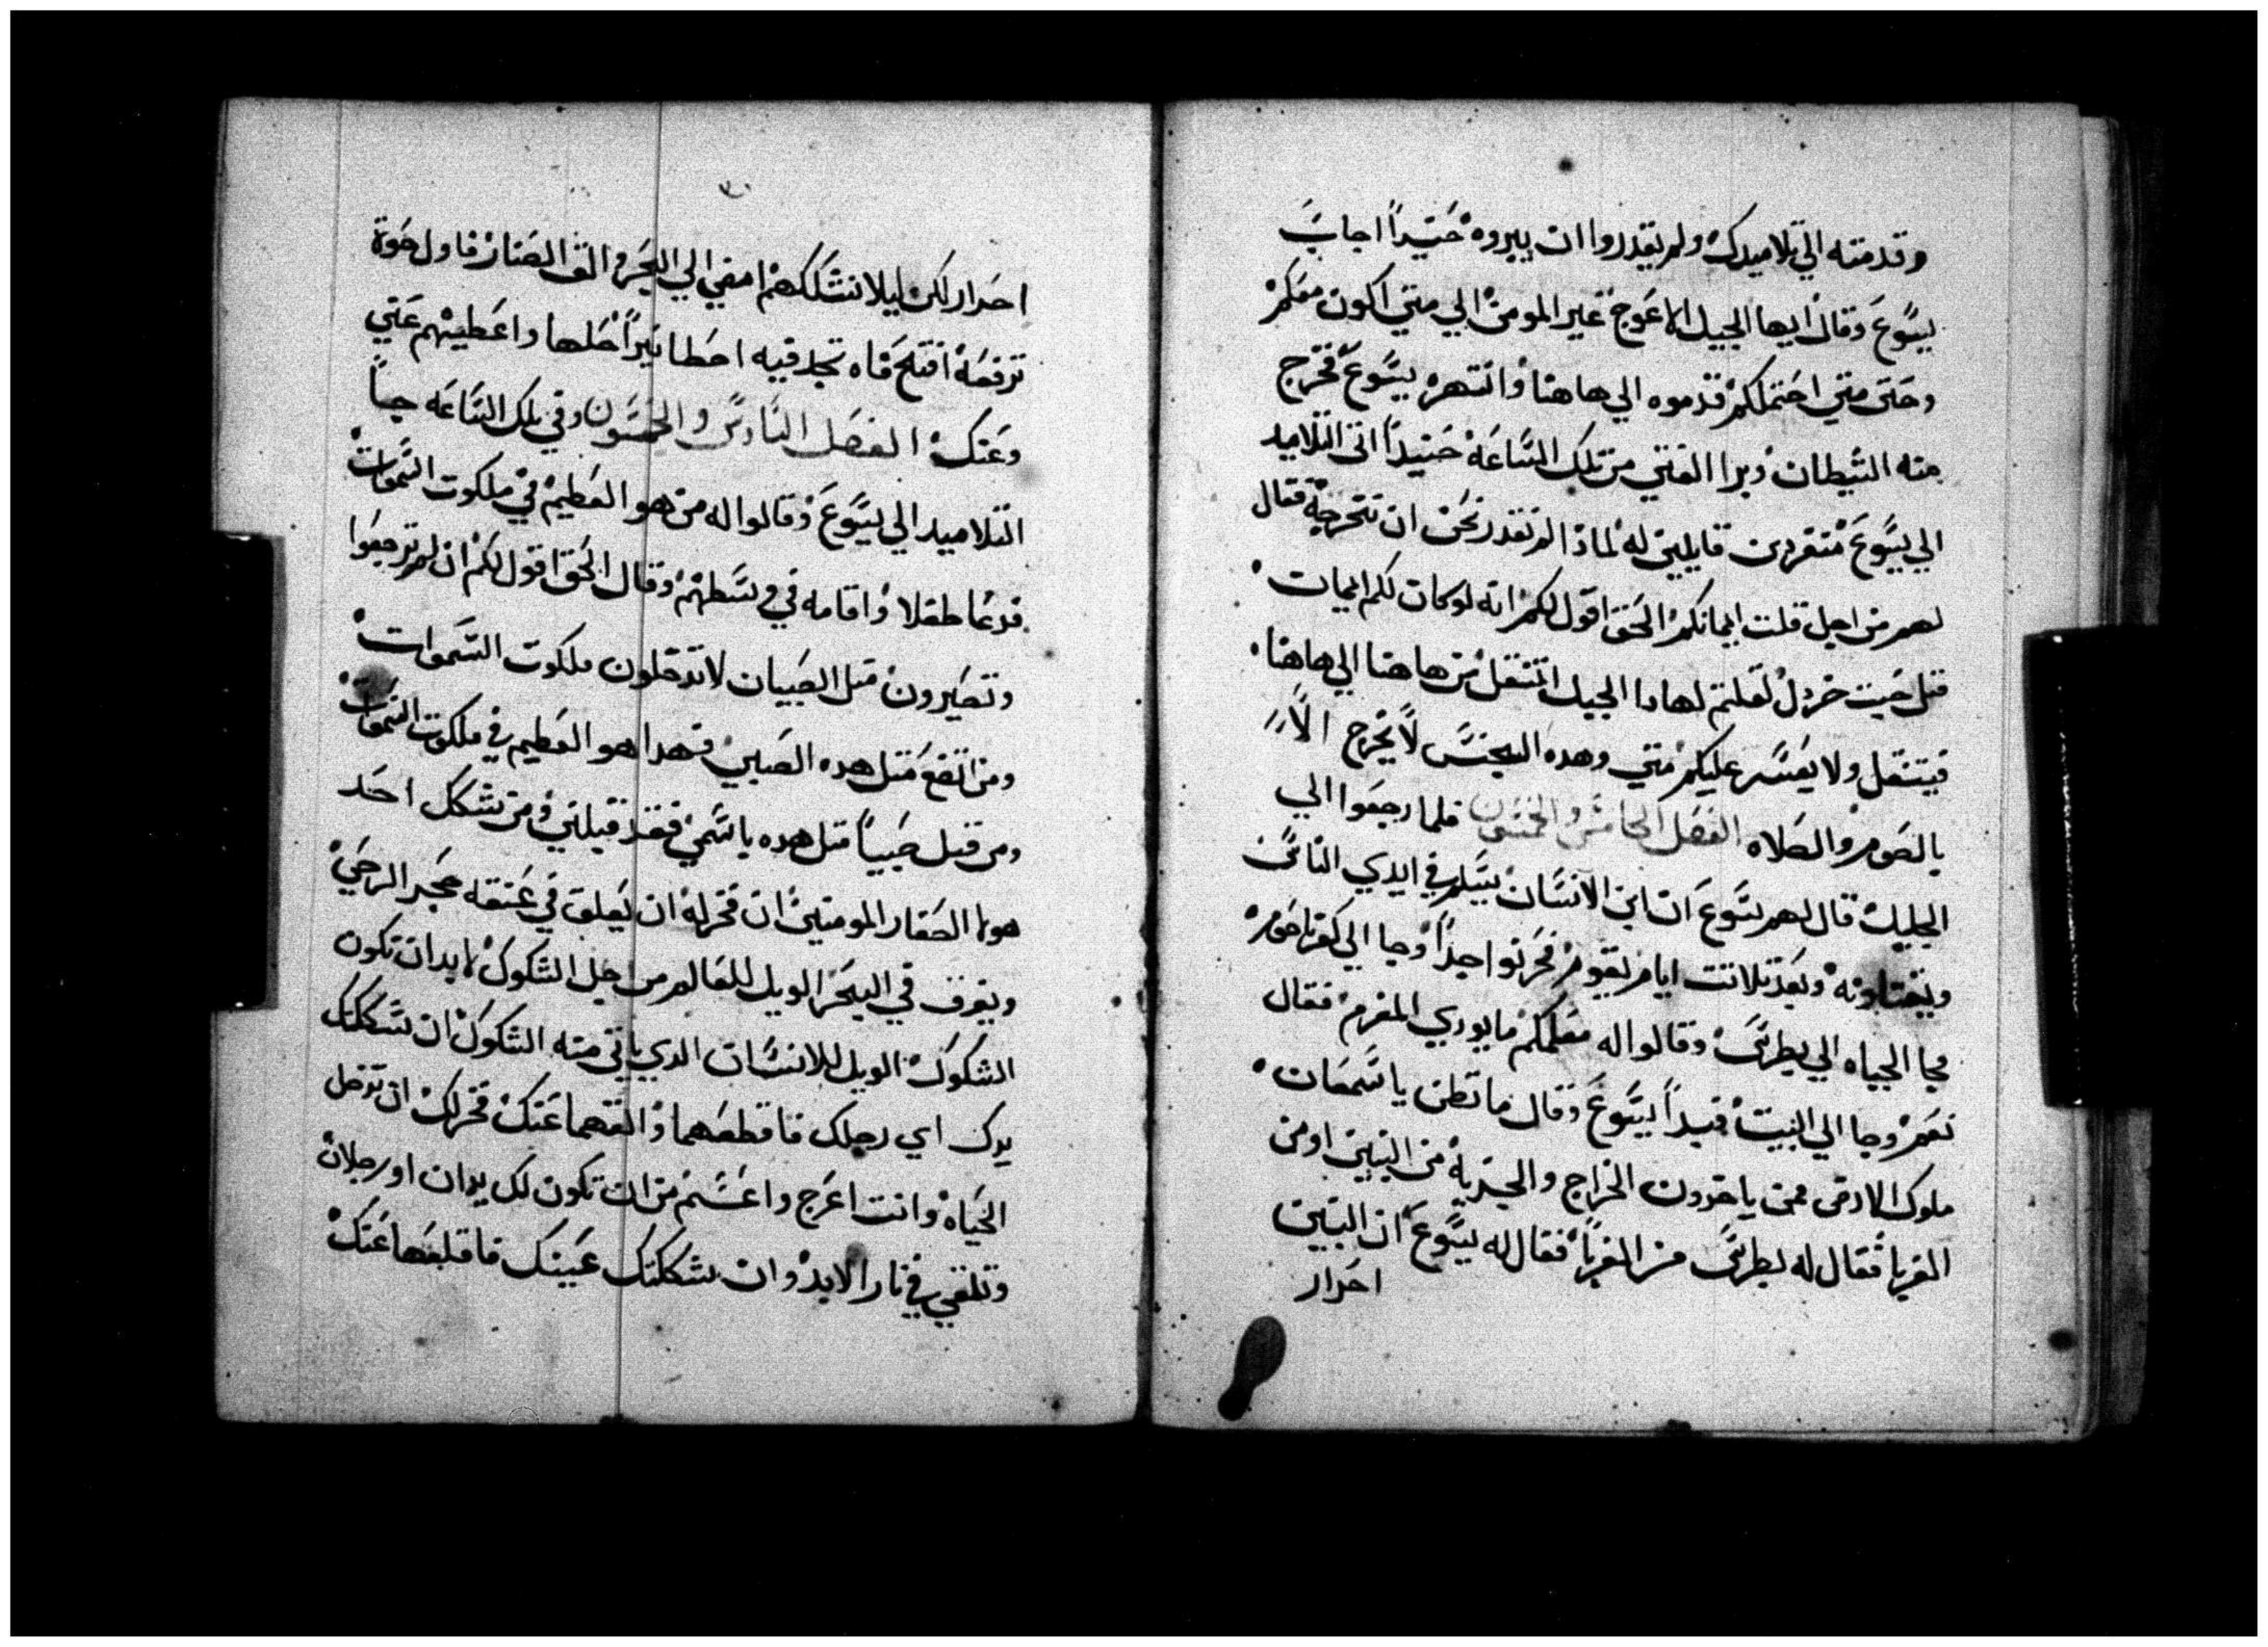 وقدمته الي تلاميدك ولم يقدروا ان يبروه حنيداً اجاب
يسوع وقال ايها الجيل الاعوج غير المومن الي متي اكون معكم
وحتى متي احتملكم قدموه الي هاهنا وانتهره يسوع فخرج
منه الشيطان وبرا الفتي من تلك الساعه حنيداً اتى التلاميد
الي يسوع منفردين قايلين له لمادا لم نقدر نحن ان نخرجه فقال
لهم من اجل قلت ايمانكم الحق اقول لكم انه لو كان لكم ايمان
متل حبت خردل لقلتم لهادا الجبل انتقل من هاهنا الي هاهنا
فينتقل ولا يعسر عليكم شي وهده الجنس لا يخرج الا
بالصوم والصلاه الفصل الخامس والخمسون فلما رجعوا الي
الجليل قال لهم يسوع ان ابن الانسان يسلم في ايدي الناس
ويقتلونه وبعد تلاتت ايام يقوم فحزنوا جداً وجا الي كفرناحوم
فجا الجباه الي بطرس وقالوا له معلمكم ما يودي المغرم فقال
نعم وجا الي البيت فبدا يسوع وقال ما تظن يا سمعان
ملوك الارض ممن ياخدون الخراج والجزيه من البنين او من
الغربا فقال له بطرس من الغربا فقال له يسوع ان البنين
احرار
احرار لكن ليلا نشككهم امضي الي البحر والق الصناره فاول حوت
ترفعه افتح فاه تجد فيه اسطاتيراً خدها واعطيهم عني
وعنك الفصل السادس والخمسون وفي تلك الساعه جا
التلاميد الي يسوع وقالوا له من هو العظيم في ملكوت السموات
فدعا طفلا واقامه في وسطهم وقال الحق اقول لكم ان لم ترجعوا
وتصيرون متل الصبيان لا تدخلون ملكوت السموات
ومن اتضع متل هده الصبي فهدا هو العظيم في ملكوت السموات
ومن قبل صبياً متل هده باسمي فقد قبلني ومن شكك احد
هولا الصغار المومنين ان فخر له ان يعلق في عنقه حجر الرحي
ويغرق في البحر الويل للعالم من اجل الشكوك لابد ان تكون
الشكوك الويل للانسان الدي ياتي منه الشكوك ان شككتك
يدك اي رجلك فاقطعهما والقهما عنك فخر لك ان تدخل
الحياه وانت اعرج واعسم من ان تكون لك يدان او رجلان
وتلقي في نار الابد وان شككتك عينك فاقلعها عنك